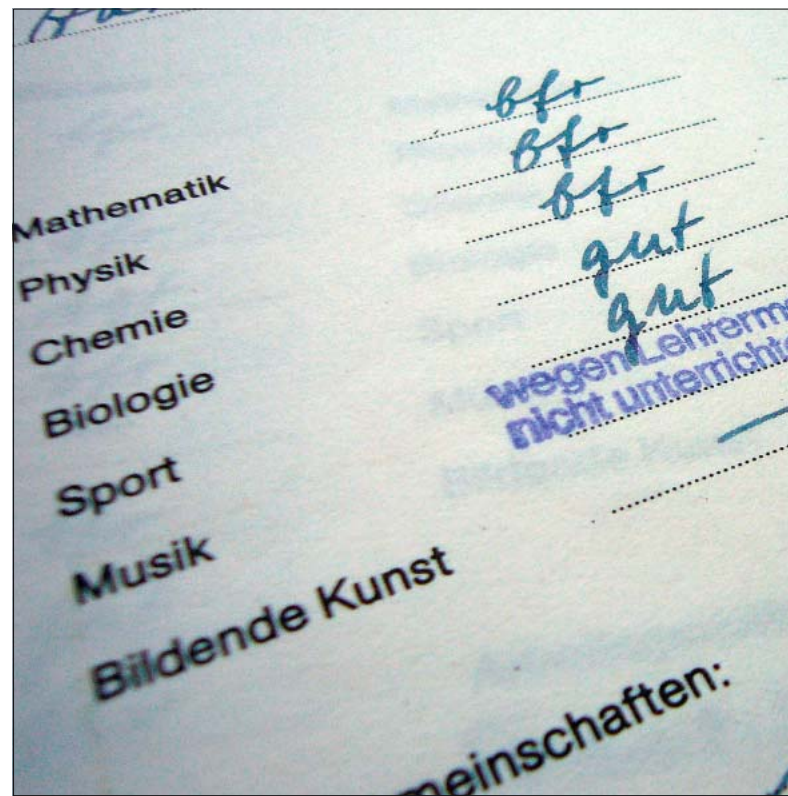 Mathematik bfr
Physik bfr
Chemie bfr
Biologie gut
Sport gut
Musik wegen Lehrerm
nicht unterrichte
Bildende Kunst —
meinschaften: